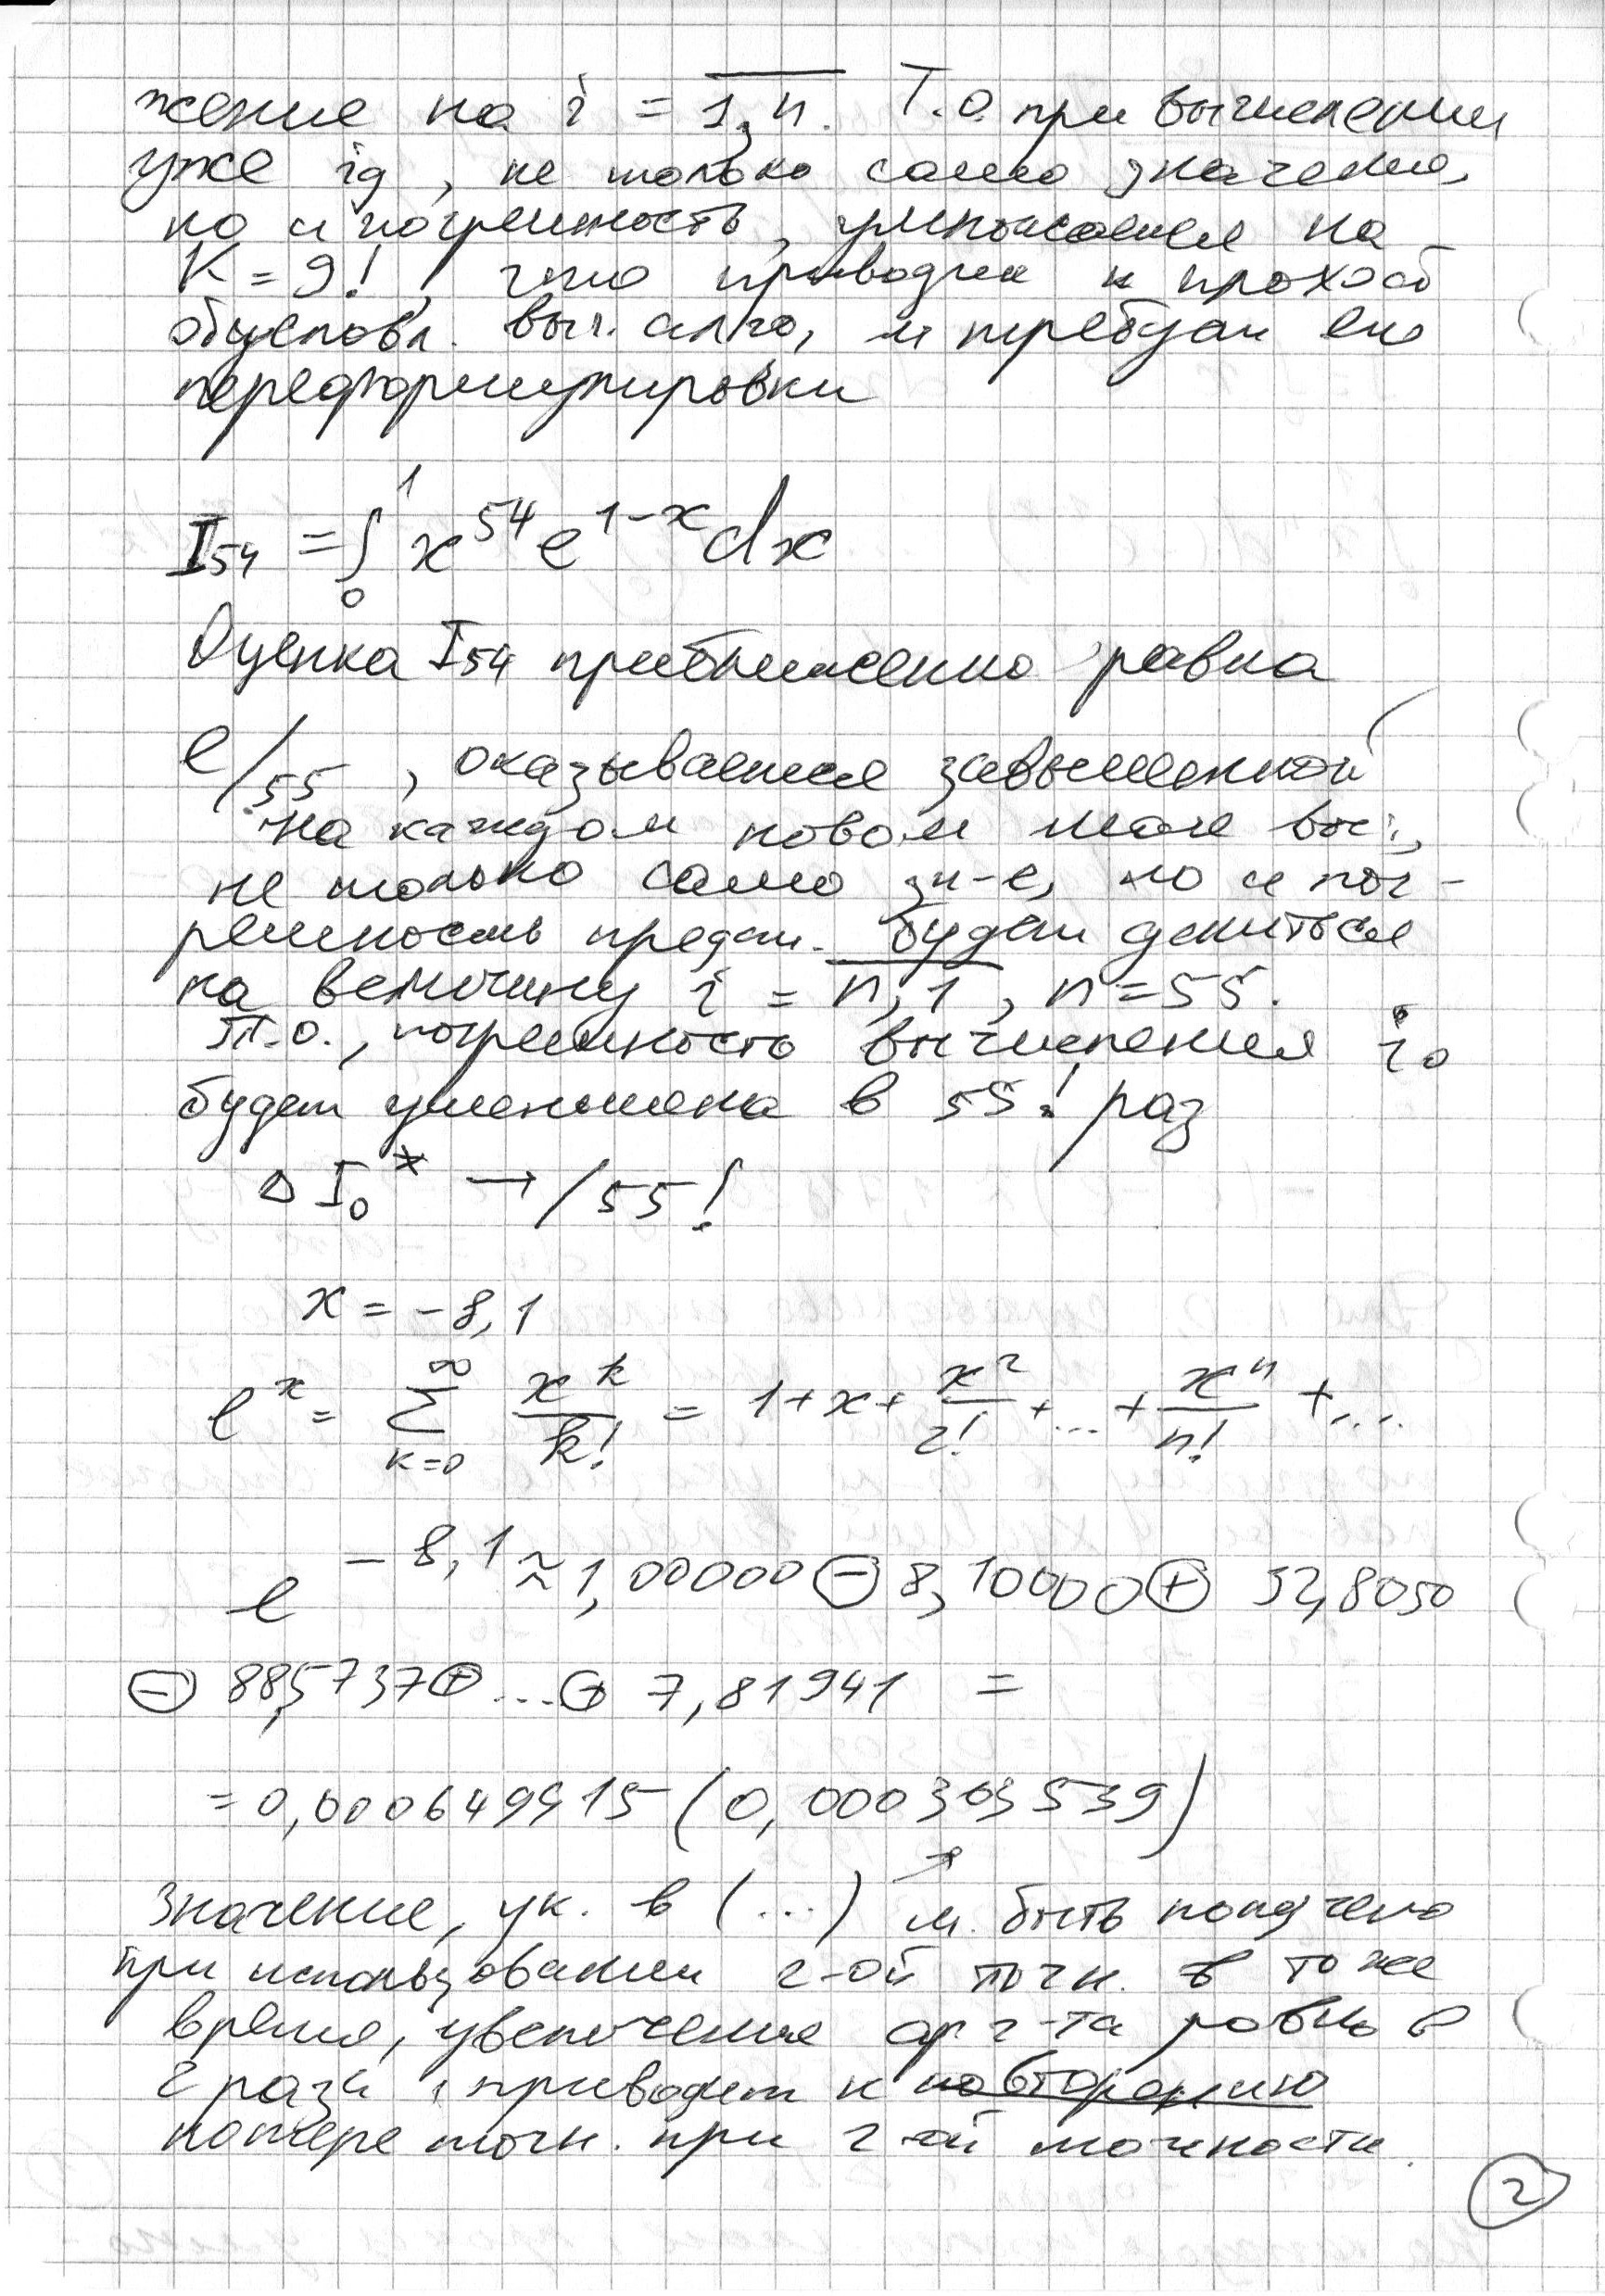 жение на i = 1, n. Т.о. при вычислении
уже i9, не только само значение,
но и погрешность, умножается на
K = 9!, что приводит к плохой
обусловл. выч. алго, и требует его
переформулировки
I54 = ∫₀¹ x^54 e^(1-x) dx
Оценка I54 приближенно равна
e/55, оказывается завышенной
на каждом новом шаге выч.,
не только само зн-е, но и пог-
решность предст. будет делиться
на величину i = n, 1, n = 55.
Т.о., погрешность вычисления i0
будет уменьшена в 55! раз
Δ I0* → /55!
x = -8,1
e^x = ∑_{k=0}^{∞} x^k/k! = 1 + x + x²/2! + ... + x^n/n! + ...
e^(-8,1) ≈ 1,00000 ⊖ 8,10000 ⊕ 32,8050
⊖ 88,5737 ⊕ ... ⊕ 7,81941 =
= 0,000649915 (0,000303539)
Значение, ук. в (...) м. быть получено
при использовании 2-ой точн. в то же
время, увеличение арг-та ровно в
2 раза, приводит к повторению
потере точн. при 2-ой точности.
2